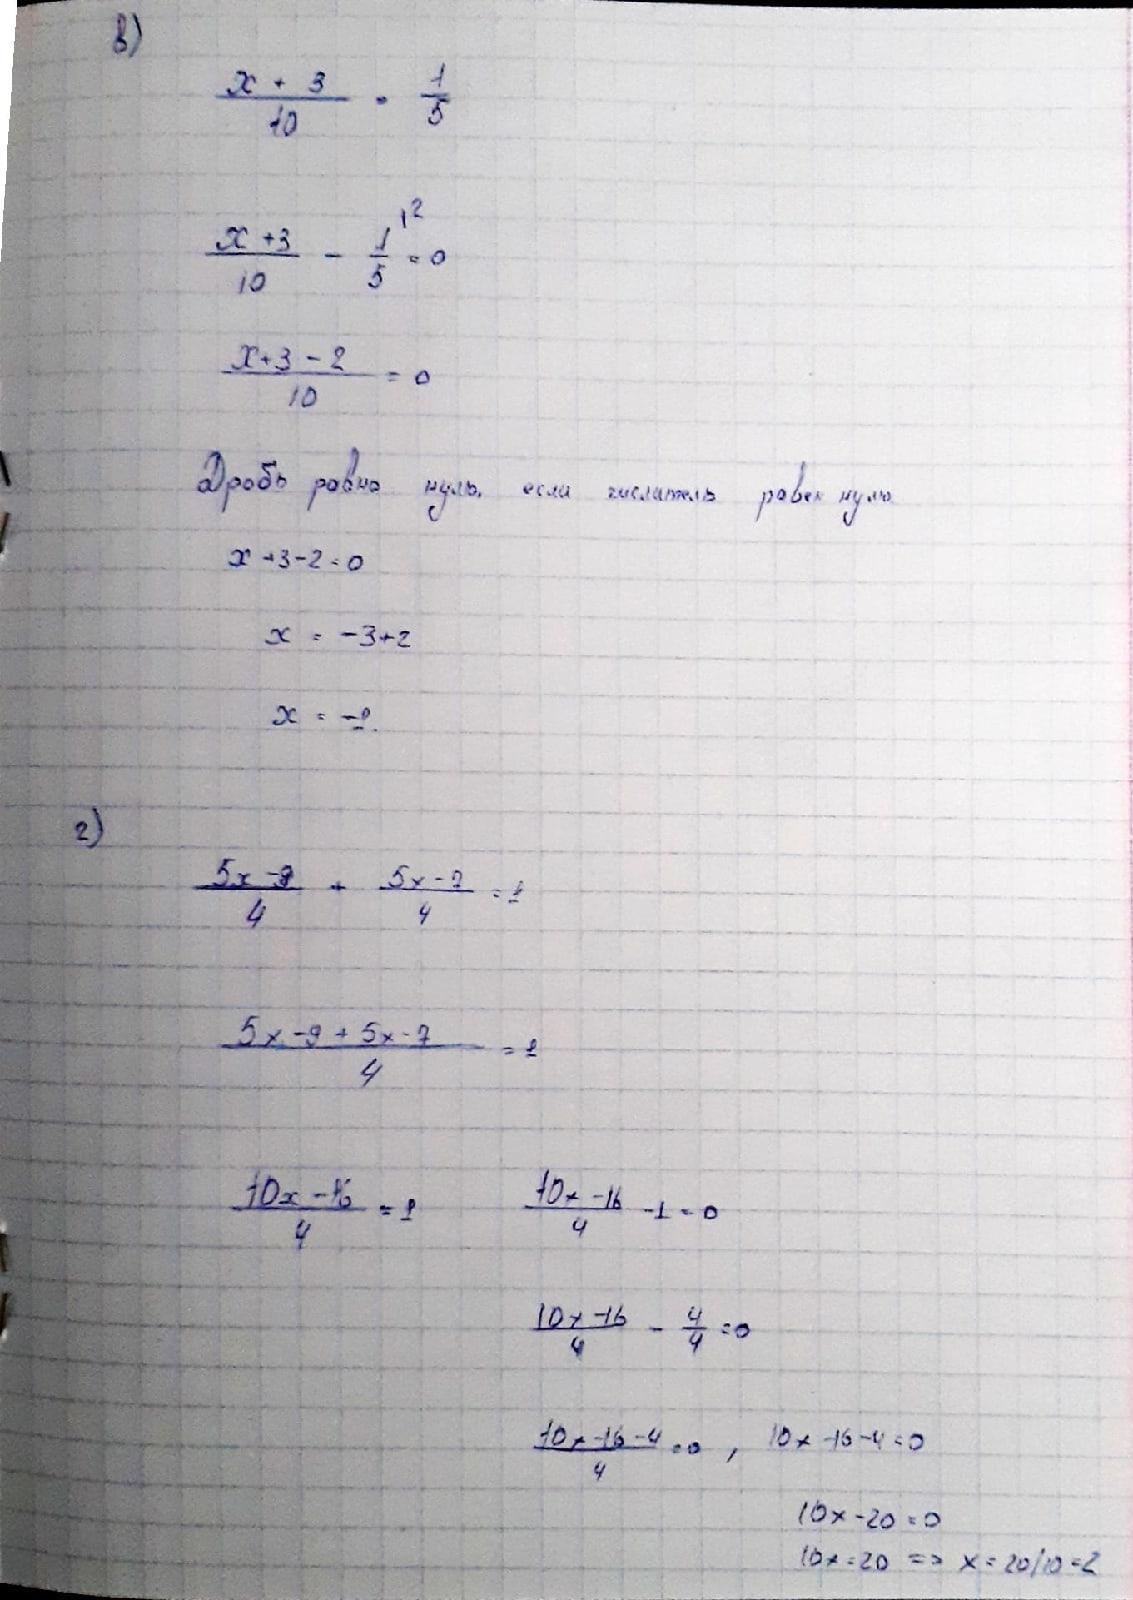 в)
(x + 3)/10 = 1/5
(x + 3)/10 - 1/5 ^2 = 0
(x+3-2)/10 = 0
Дробь равна нулю, если числитель равен нулю.
x+3-2=0
x = -3+2
x = -1.
г)
(5x-9)/4 + (5x-7)/4 = 1
(5x-9+5x-7)/4 = 1
(10x-16)/4 = 1 (10x-16)/4 -1=0
(10x-16)/4 - 4/4 =0
(10x-16-4)/4 =0 , 10x-16-4=0
10x-20=0
10x=20 => x=20/10=2